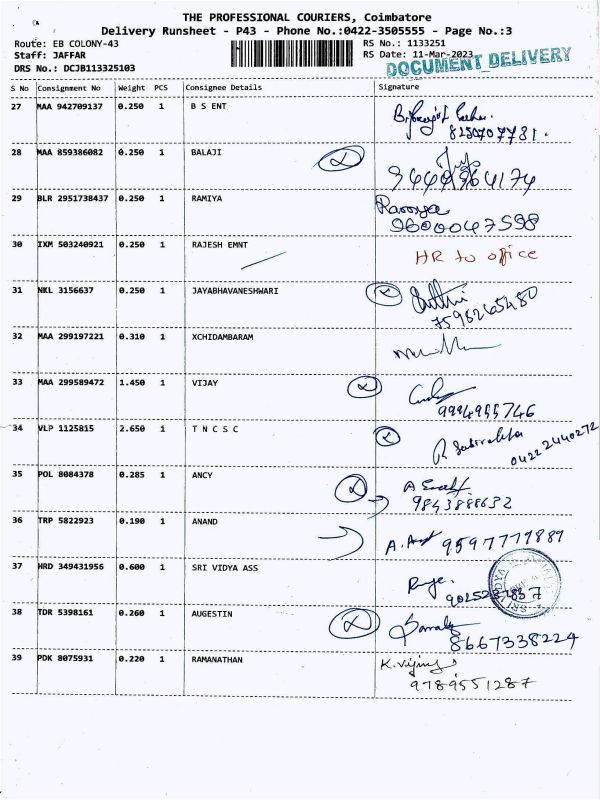 THE PROFESSIONAL COURIERS, Coimbatore
Delivery Runsheet - P43 - Phone No.:0422-3505555 - Page No.:3
Route: EB COLONY-43 RS No.: 1133251
Staff: JAFFAR RS Date: 11-Mar-2023
DRS No.: DCJB113325103 DOCUMENT DELIVERY
S No Consignment No Weight PCS Consignee Details Signature
27 MAA 942709137 0.250 1 B S ENT
28 MAA 859386082 0.250 1 BALAJI
29 BLR 2951738437 0.250 1 RAMIYA Ramya
9600047598
30 IXM 503240921 0.250 1 RAJESH EMNT HR to office
31 NKL 3156637 0.250 1 JAYABHAVANESHWARI
7598265480
32 MAA 299197221 0.310 1 XCHIDAMBARAM
33 MAA 299589472 1.450 1 VIJAY
9994955746
34 VLP 1125815 2.650 1 T N C S C
04222440272
35 POL 8084378 0.285 1 ANCY
9843888632
36 TRP 5822923 0.190 1 ANAND 9597777889
37 HRD 349431956 0.600 1 SRI VIDYA ASS
38 TDR 5398161 0.260 1 AUGESTIN
8667338224
39 PDK 8075931 0.220 1 RAMANATHAN
9789551287